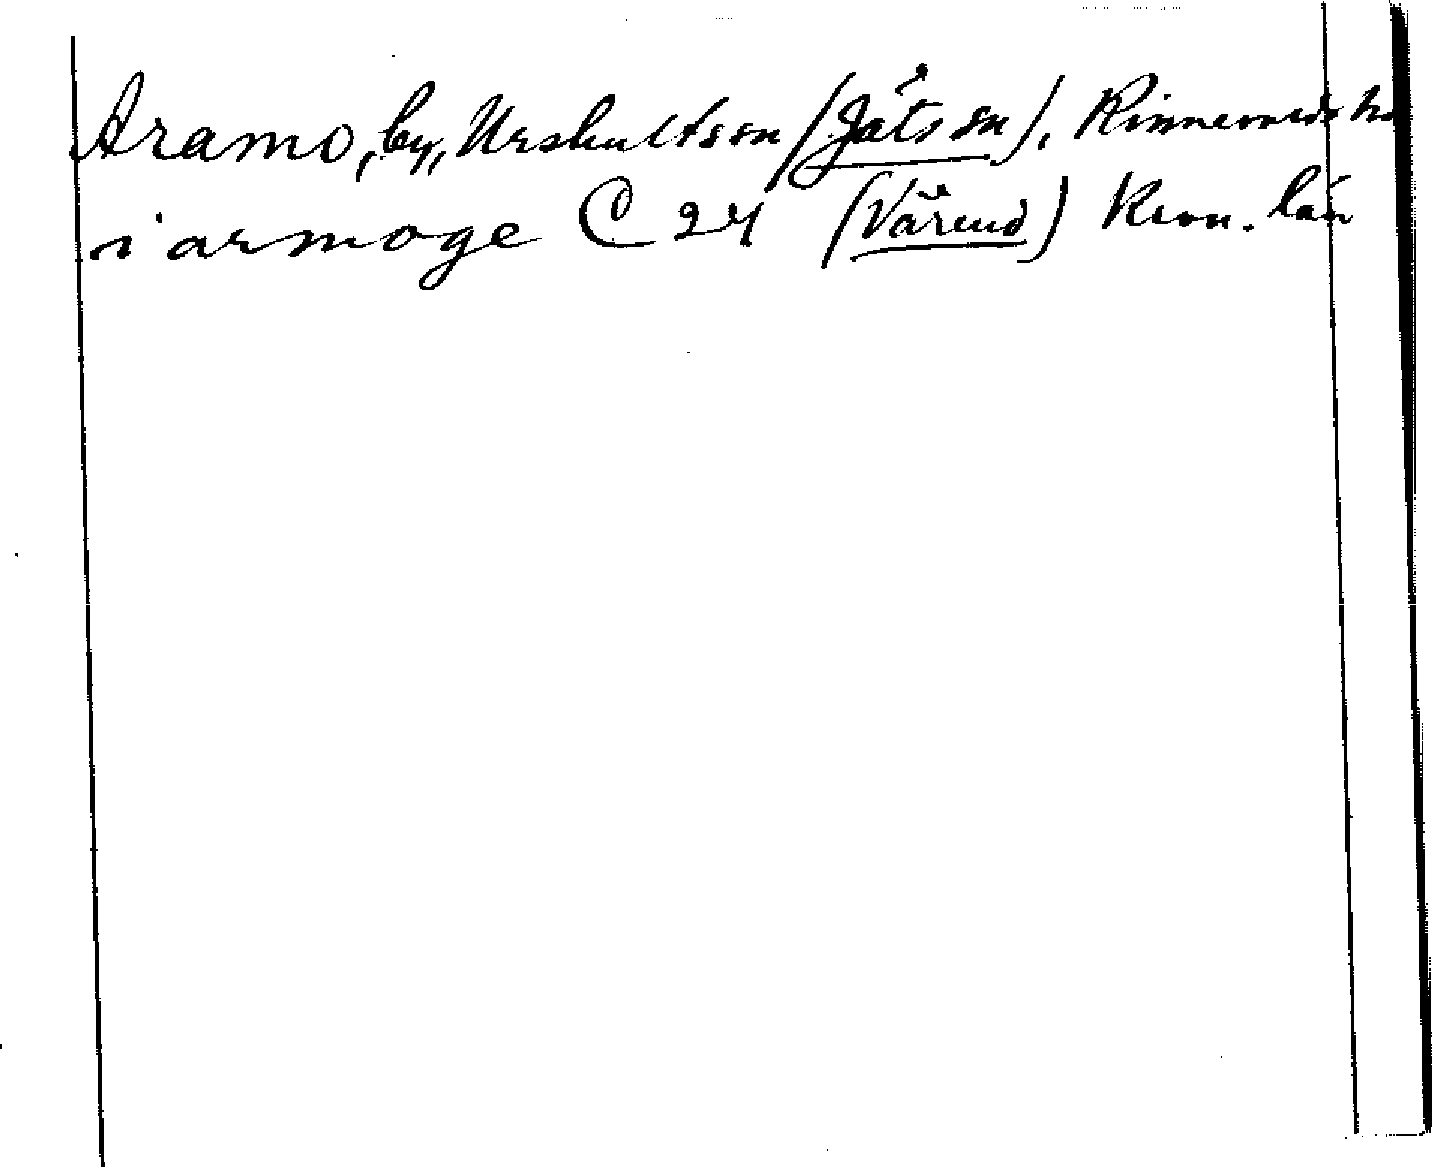 Aramo, by, Urshultssn (Jätssn), Kinnevalds hd
i armoge C 24 (Värend) Kron. län